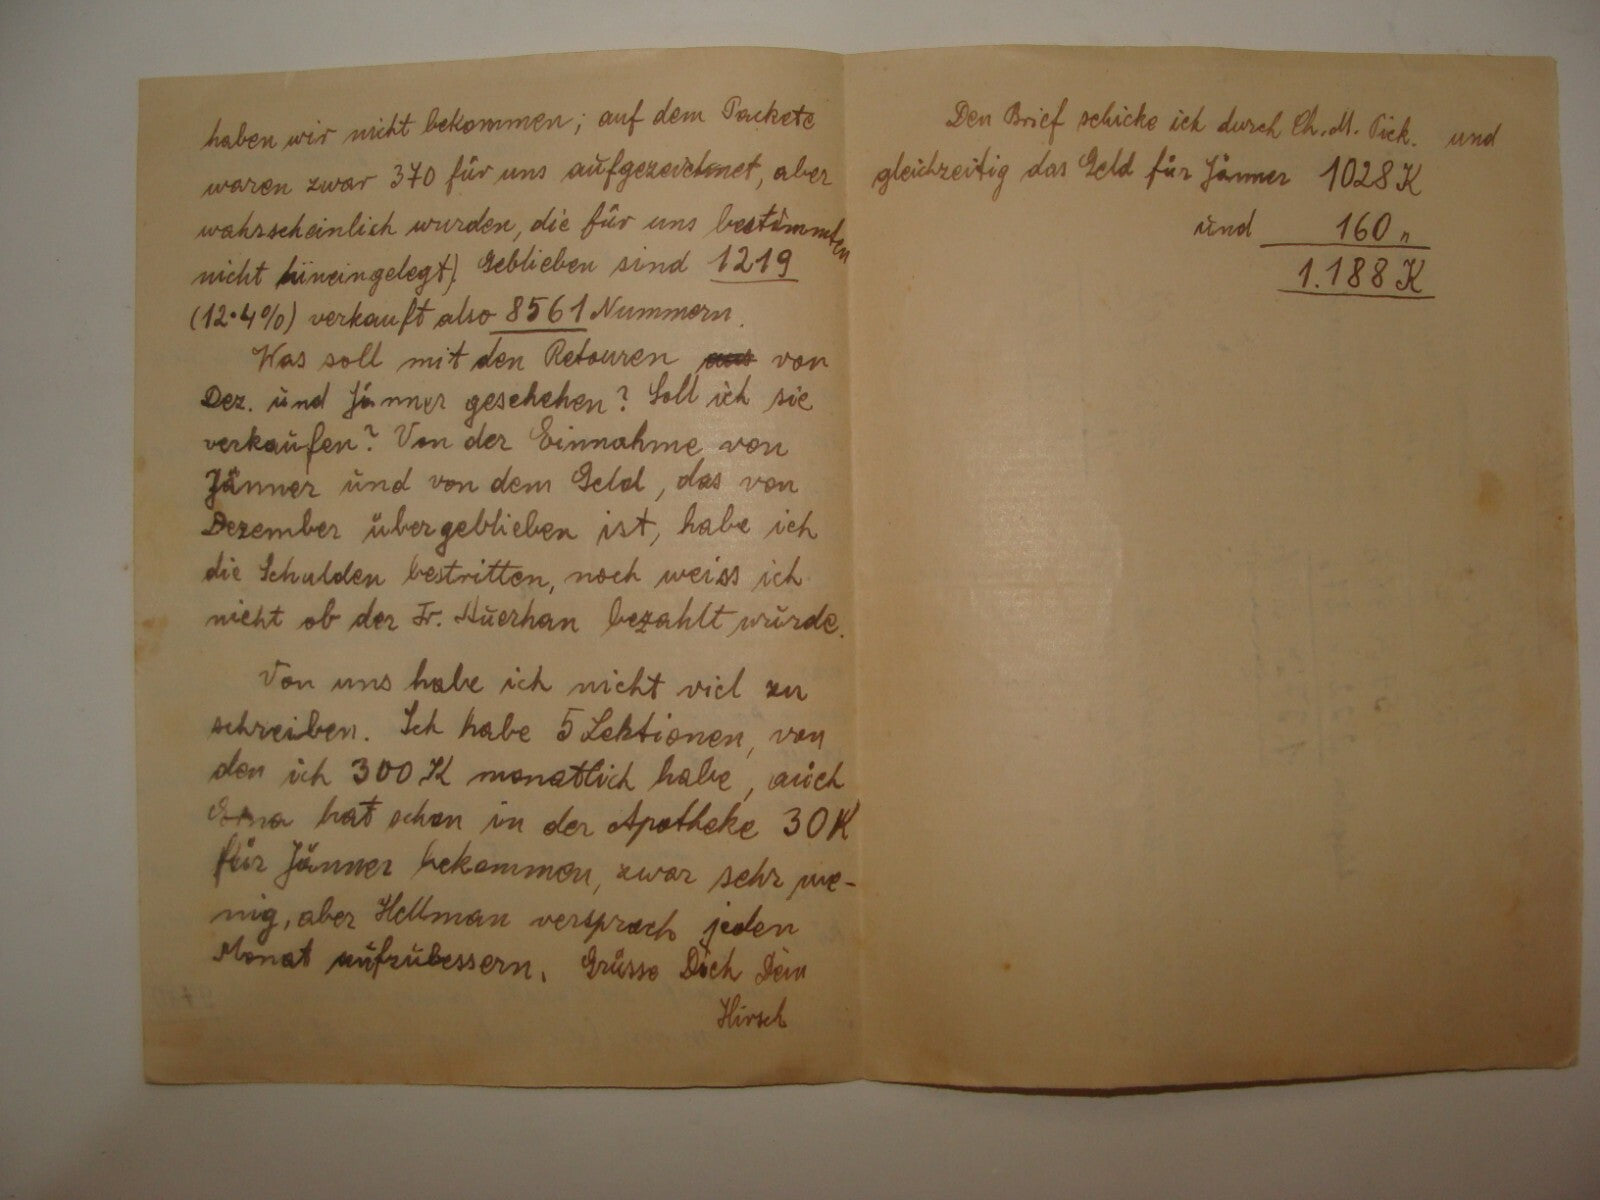 haben wir nicht bekommen; auf dem Packete
waren zwar 370 für uns aufgezeichnet, aber
wahrscheinlich wurden, die für uns bestimmten
nicht hineingelegt). Geblieben sind 1219
(12·4%) verkauft also 8561 Nummern.
Was soll mit den Retouren von
Dez. und Jänner geschehen? Soll ich sie
verkaufen? Von der Einnahme von
Jänner und von dem Geld, das von
Dezember übergeblieben ist, habe ich
die Schulden bestritten, noch weiss ich
nicht ob der Fr. Auerhan bezahlt wurde.
Von uns habe ich nicht viel zu
schreiben. Ich habe 5 Lektionen, von
den ich 300 K monatlich habe, auch
Erna hat schon in der Apotheke 30 K
für Jänner bekommen, zwar sehr we-
nig, aber Hellman versprach jeden
Monat aufzubessern. Grüsse Dich Dein
Hirsch
Den Brief schicke ich durch Ch. M. Pick. und
gleichzeitig das Geld für Jänner 1028 K
und 160 "
1.188 K